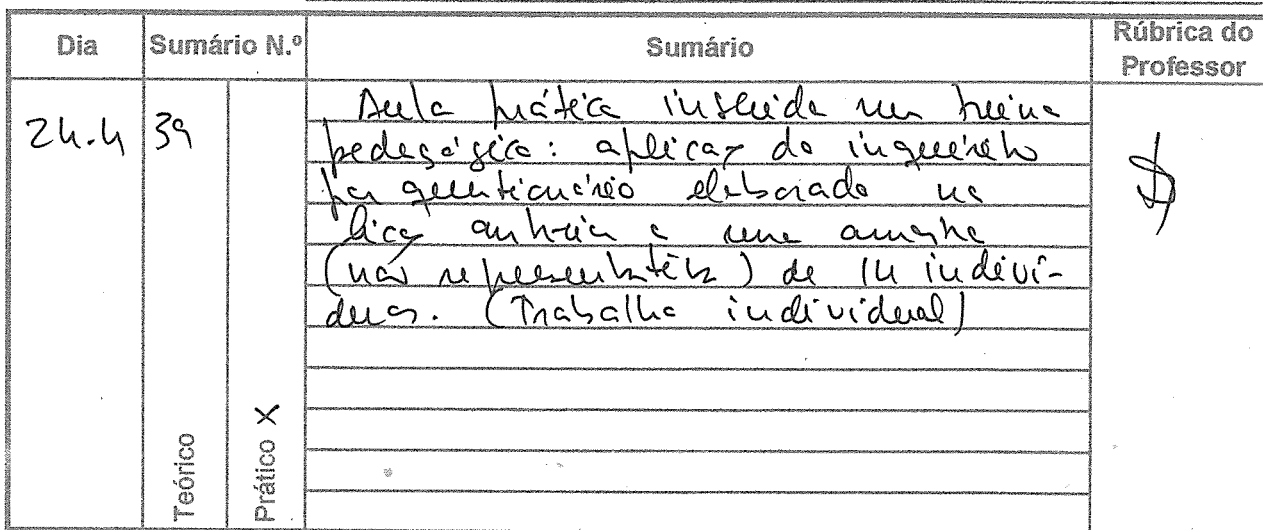 Dia
Sumário N.º
Sumário
Rúbrica do
Professor
24.4
39
Aula prática inserida num treino
pedagógico: aplicação do inquérito
por questionário elaborado na
lição anterior a uma amostra
(não representativa) de 14 indiví-
duos. (Trabalho individual)
Teórico
Prático X